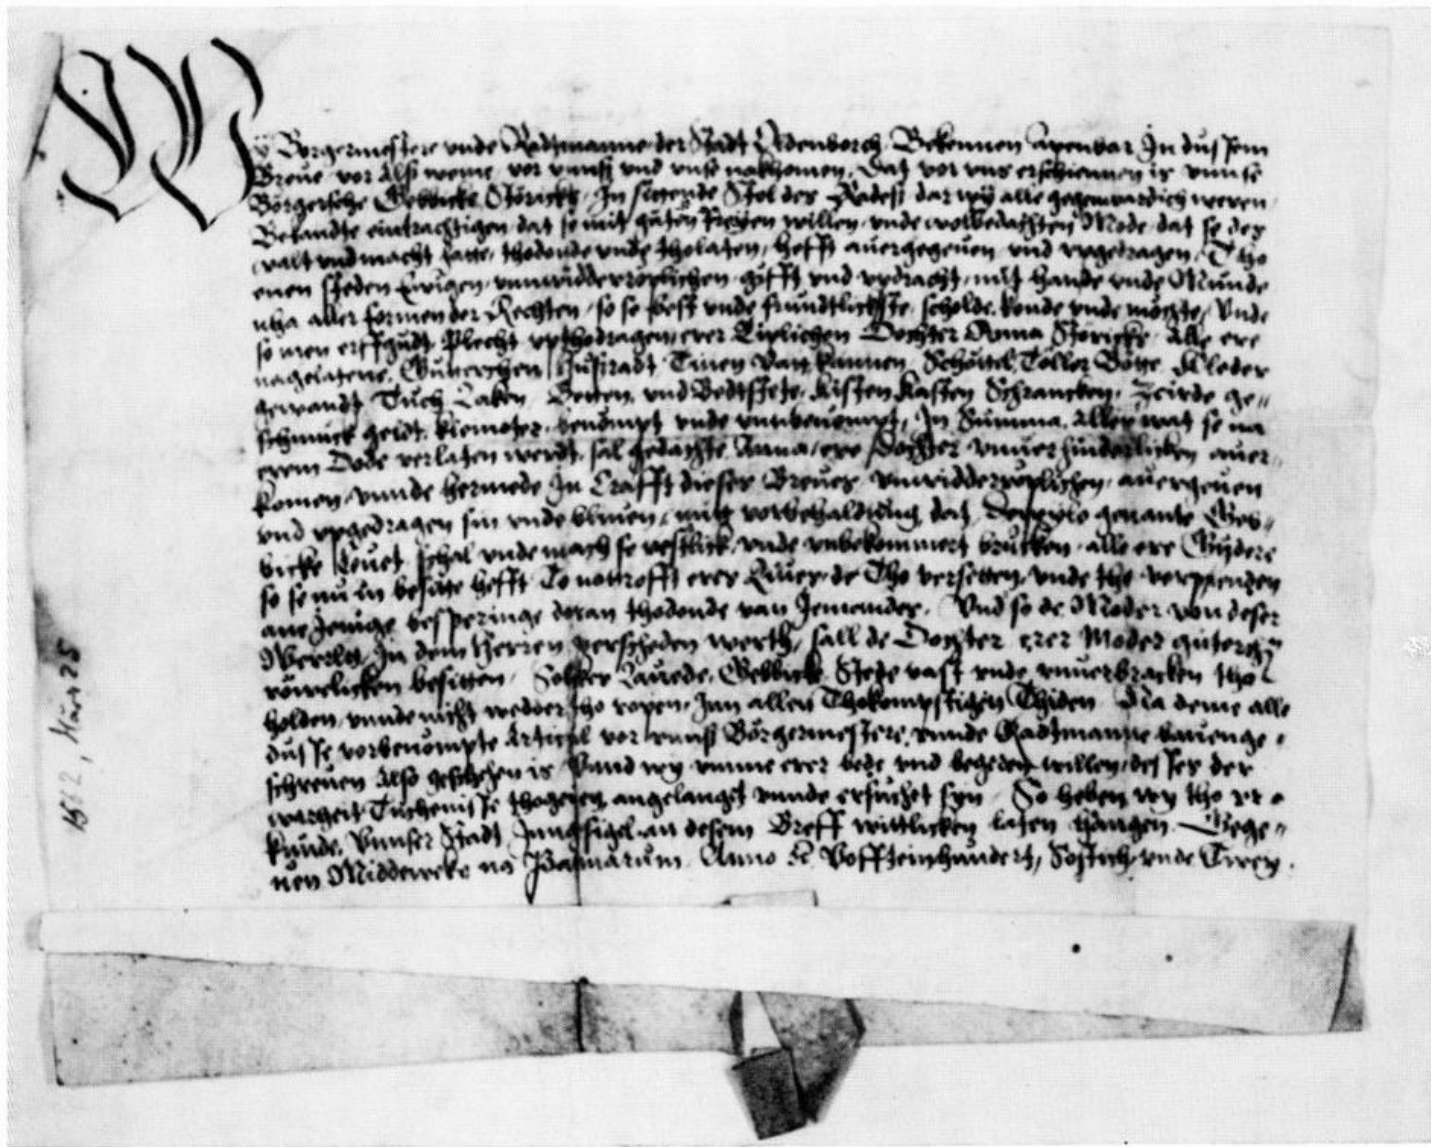 Wÿ Borgermestere vnde Radtmanne der Stadt Oldenborch Bekennen apenbar In dussem
Breue vor alss weme vor vunss vnd vnse nakhomen, Dat vor vns erschiennen is vunse
Börgersche Gebbicke Störicks, In sittende Stol des Rades, dar wy alle gegenwardich weren
Bekandte eindrachtigen dat se mit guten freyen willen, vnde wolbedachten Mode, dat se des
walt vnd macht hatte, thodonde vnde tholaten, hefft auergegeuen vnd vpgedragen, Tho
enen steden Ewigen vnnwidderroplichen gifft vnd vpdracht, mit hande vnde Munde
nha aller formen der Rechten, so se best vnde frundtlickste scholde konde vnde mochte, Vnde
so men erffgudt plecht vpthodragen, erer Liplichen Dochter Anna Störicks, Alle ere
nagelatene Gunerschen Jusradt Tinen van kannen, Schöttel Töller Botte, kleder
gewandt Tuch Laken, Betten, vnd Bedtstete, kisten kasten Schrancken, Zeirde ge=
schmuck geldt, klenoter, benompt vnde vnnbenompt, In Summa, Alles wat se na
erem Dode verlaten werdt, sal gedachte Anna, ere Dochter vnuerhinderlicken auer=
komen, vnnde hermede In Crafft dieses Breues vnwidderroplichen auergeuen
vnd vpgedragen sin vnde bliuen, mit vorbehaldung, dat, Dewyle genante Geb=
bicke leuet, schal vnde mach se vestlick, vnde vnbekommert brucken, alle ere Gudere
so se nu In besitte hefft To nottrofft eres Liues, de Tho versetten vnde tho verpenden
ane Jenige besperinge daran thodonde van Jemandes, Vnd so de Moder von deser
Werlt, In dem Herren verscheden werth, sall de Dochter erer Moder guter
röuwelicken besitten, Solkes Lauede Gebbicke Stede vast vnde vnuerbracken tho
holden, vnnde nicht wedder tho ropen, Inn allen Thokompstigen Thiden Dia deme alle
dusse vorbenompte Artickel vor vunss Börgermestere, vnnde Radtmanne bauenge=
schreuen Also geschehen is, Vnnd wy vmme erer bede vnd begeren willen, desses der
wargeit Tuchenisse thogeuen, angelanget vnnde ersuchet syn, So heben wy tho vr=
kunde, Vnnser Stadt Inngesigel an desem Breff wittlicken laten hangen Gege=
uen Middeweke na Palmarum Anno der Voffteinhundert, Sostich vnde Twey.
1562, März 25